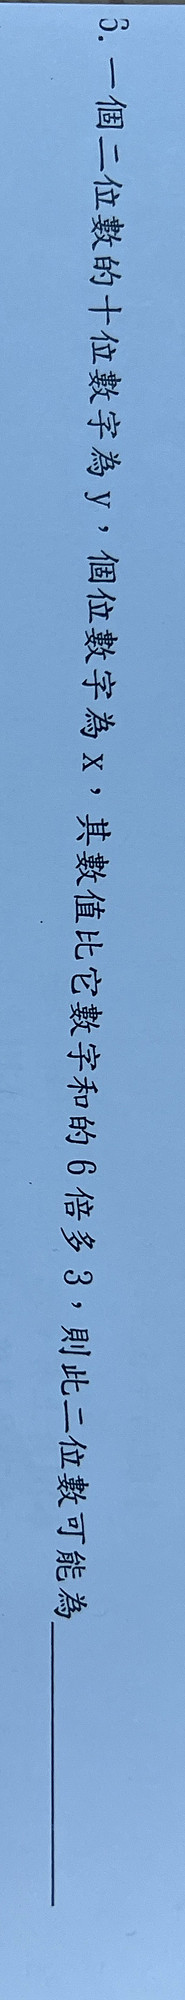 6. 一個二位數的十位數字為y，個位數字為x，其數值比它數字和的6倍多3，則此二位數可能為